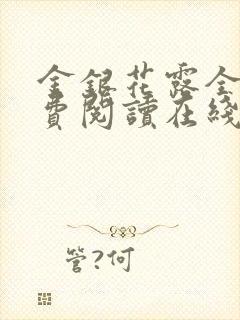 金銀花露全
費閱讀在綫
管?何